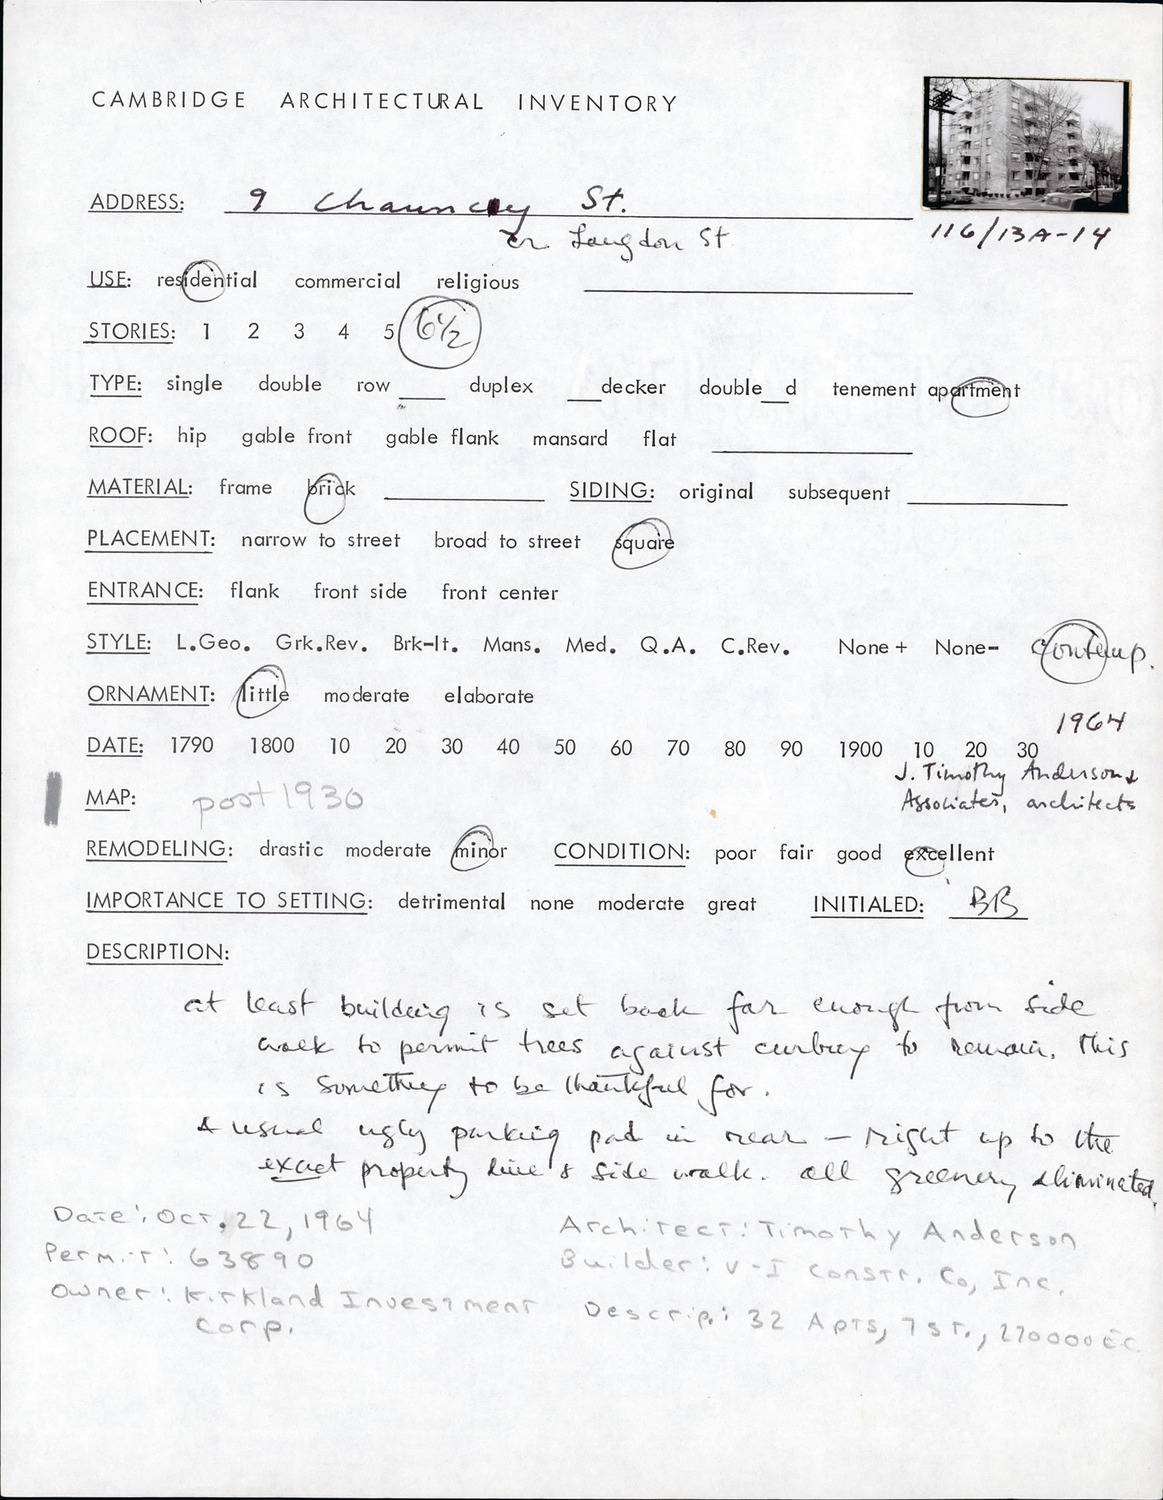 CAMBRIDGE ARCHITECTURAL INVENTORY
ADDRESS: 9 Chauncey St.
cr. Langdon St
116/13A-14
USE: residential commercial religious
STORIES: 1 2 3 4 5 6½
TYPE: single double row ___ duplex ___decker double__d tenement apartment
ROOF: hip gable front gable flank mansard flat
MATERIAL: frame brick SIDING: original subsequent
PLACEMENT: narrow to street broad to street square
ENTRANCE: flank front side front center
STYLE: L.Geo. Grk.Rev. Brk-It. Mans. Med. Q.A. C.Rev. None+ None- Contemp.
ORNAMENT: little moderate elaborate
1964
DATE: 1790 1800 10 20 30 40 50 60 70 80 90 1900 10 20 30
J. Timothy Anderson &
Associates, architects
MAP: post 1930
REMODELING: drastic moderate minor CONDITION: poor fair good excellent
IMPORTANCE TO SETTING: detrimental none moderate great INITIALED: BB
DESCRIPTION:
at least building is set back far enough from side
walk to permit trees against curbing to remain. This
is something to be thankful for.
& usual ugly parking pad in rear – right up to the
exact property line & side walk. all greenery eliminated.
Date: Oct. 22, 1964
Permit: 63890
Owner: Kirkland Investment
Corp.
Architect: Timothy Anderson
Builder: V-I Constr. Co, Inc.
Descrip.: 32 Apts, 7 st., 270000 EC